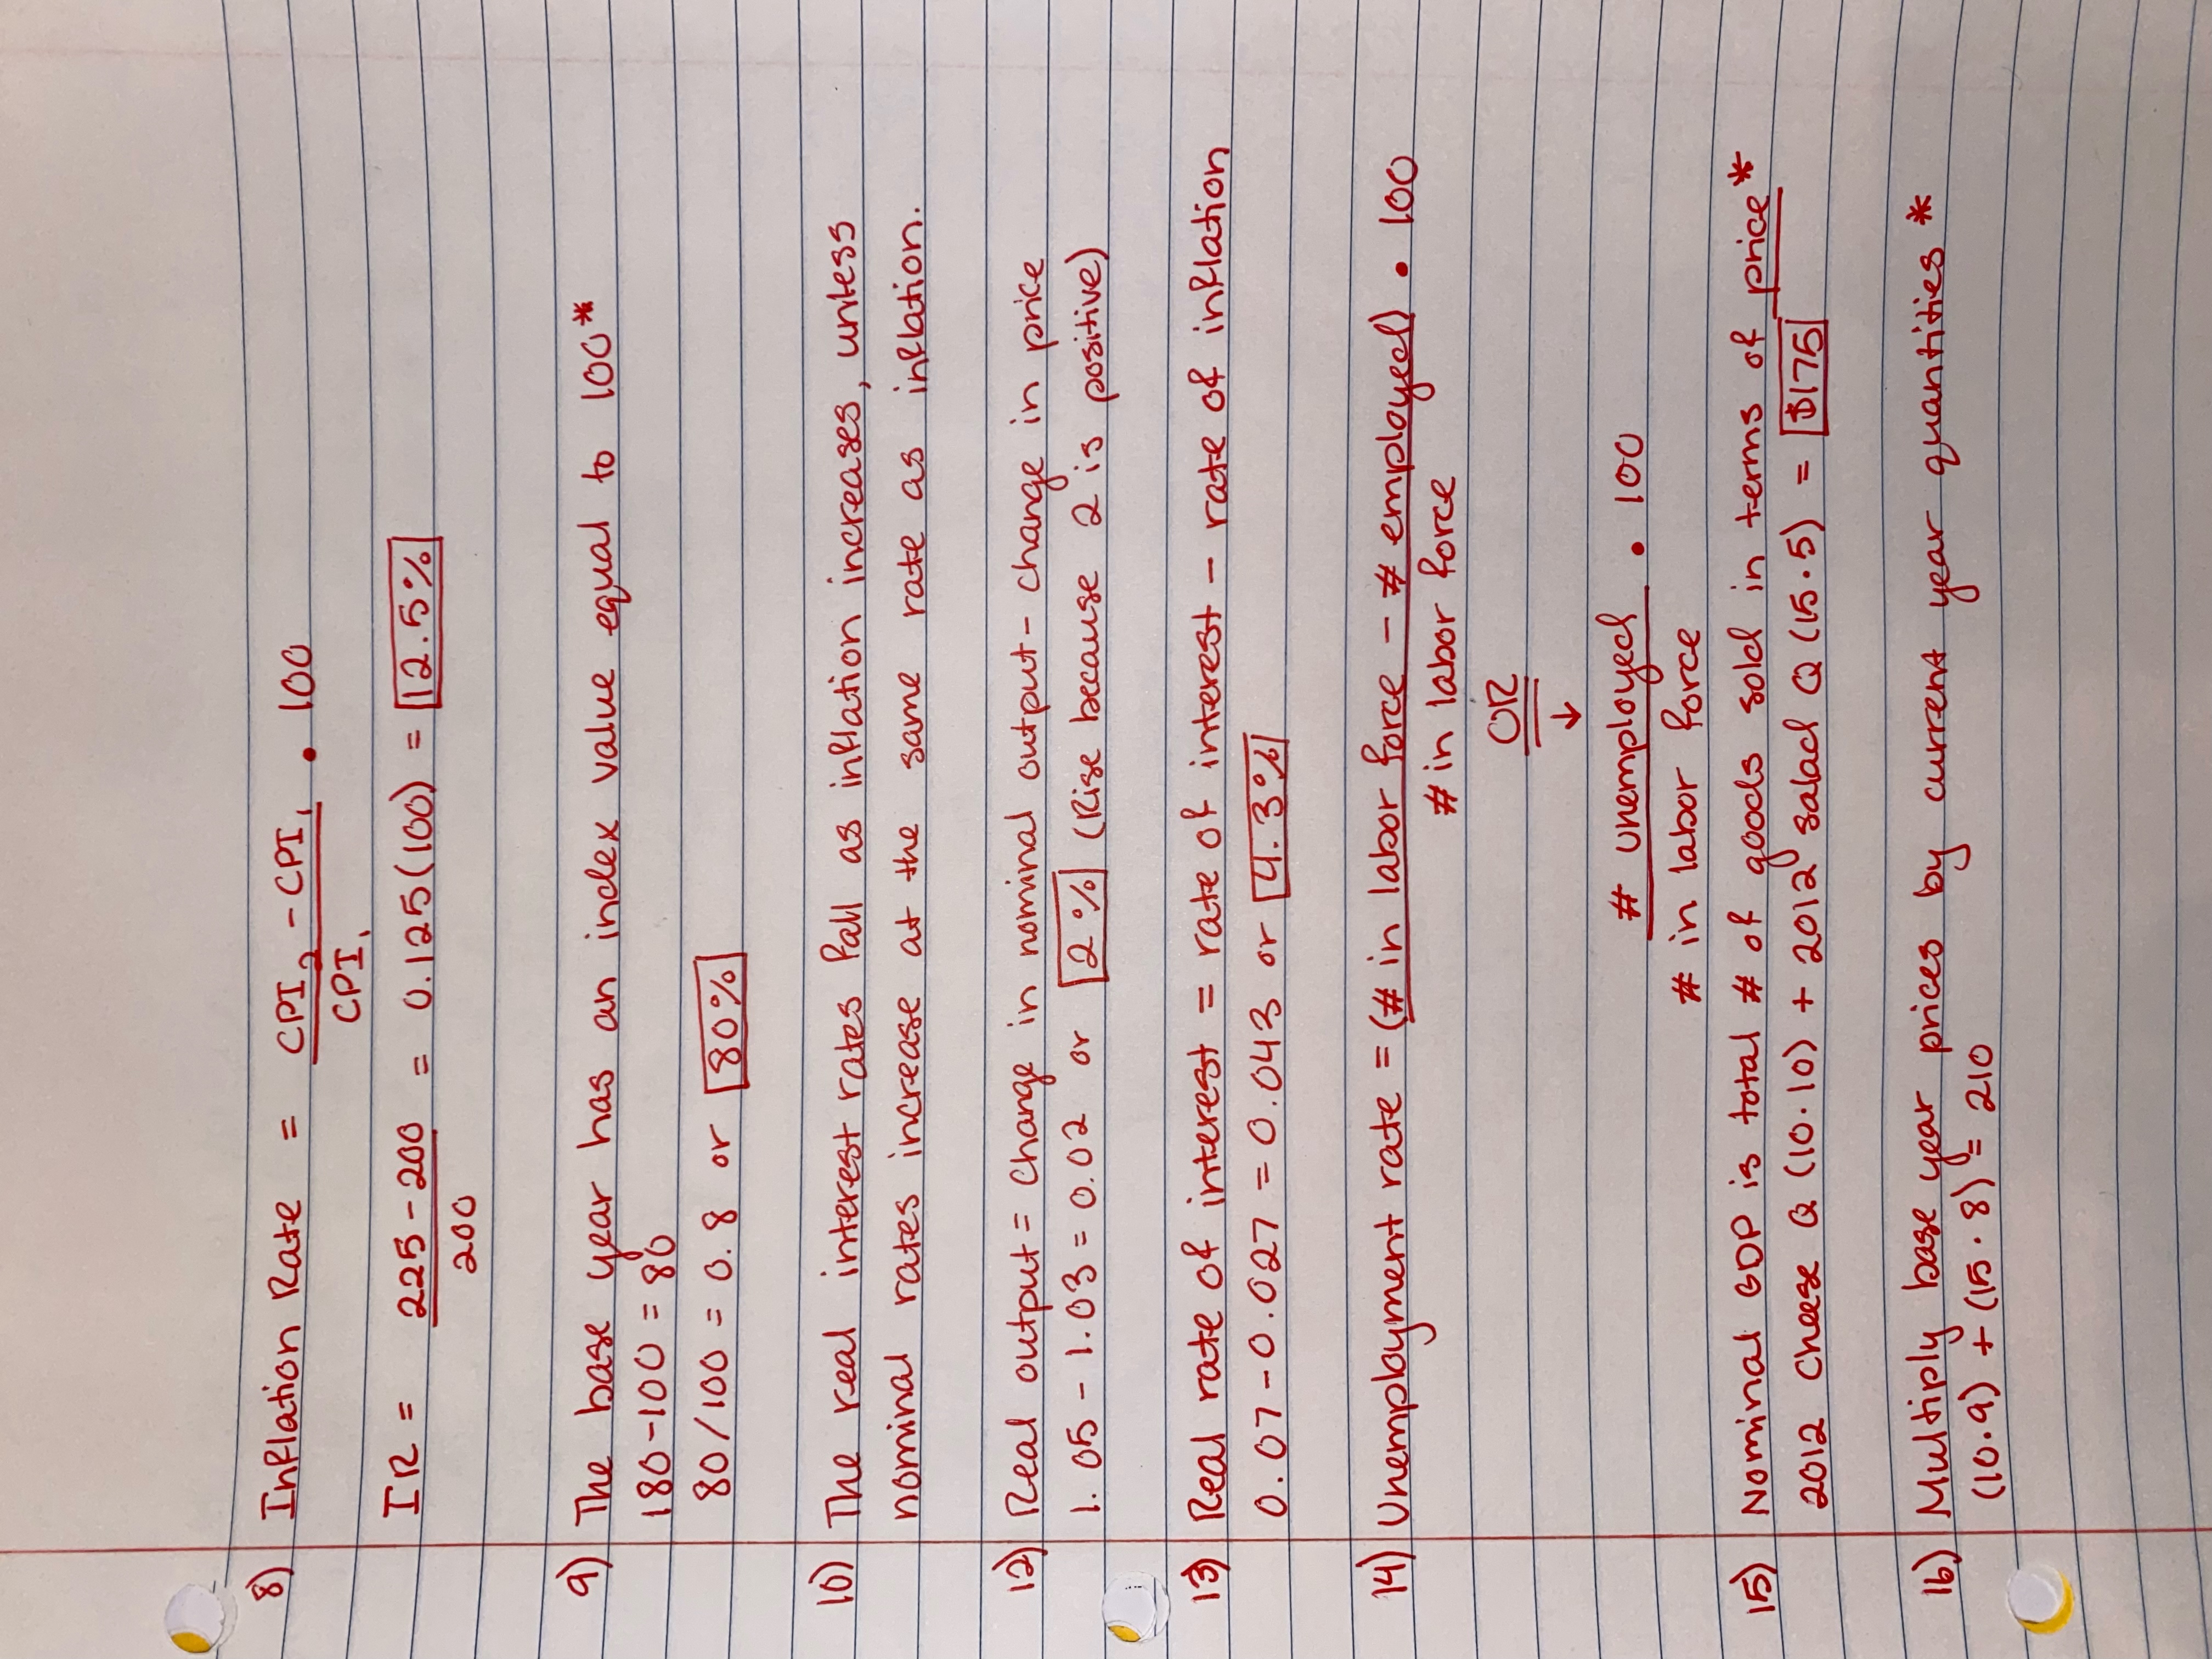 8) Inflation Rate = CPI₂ - CPI₁ • 100
CPI₁
IR = 225 - 200 = 0.125(100) = 12.5%
200
9) The base year has an index value equal to 100*
180-100 = 80
80/100 = 0.8 or 80%
10) The real interest rates fall as inflation increases, unless
nominal rates increase at the same rate as inflation.
12) Real output = change in nominal output - change in price
1.05 - 1.03 = 0.02 or 2% (Rise because 2 is positive)
13) Real rate of interest = rate of interest - rate of inflation
0.07-0.027 = 0.043 or 4.3%
14) Unemployment rate = (# in labor force - # employed) • 100
# in labor force
OR
↓
# unemployed • 100
# in labor force
15) Nominal GDP is total # of goods sold in terms of price*
2012 Cheese Q (10·10) + 2012 salad Q (15·5) = $175
16) Multiply base year prices by current year quantities*
(10·9) + (15·8) = 210